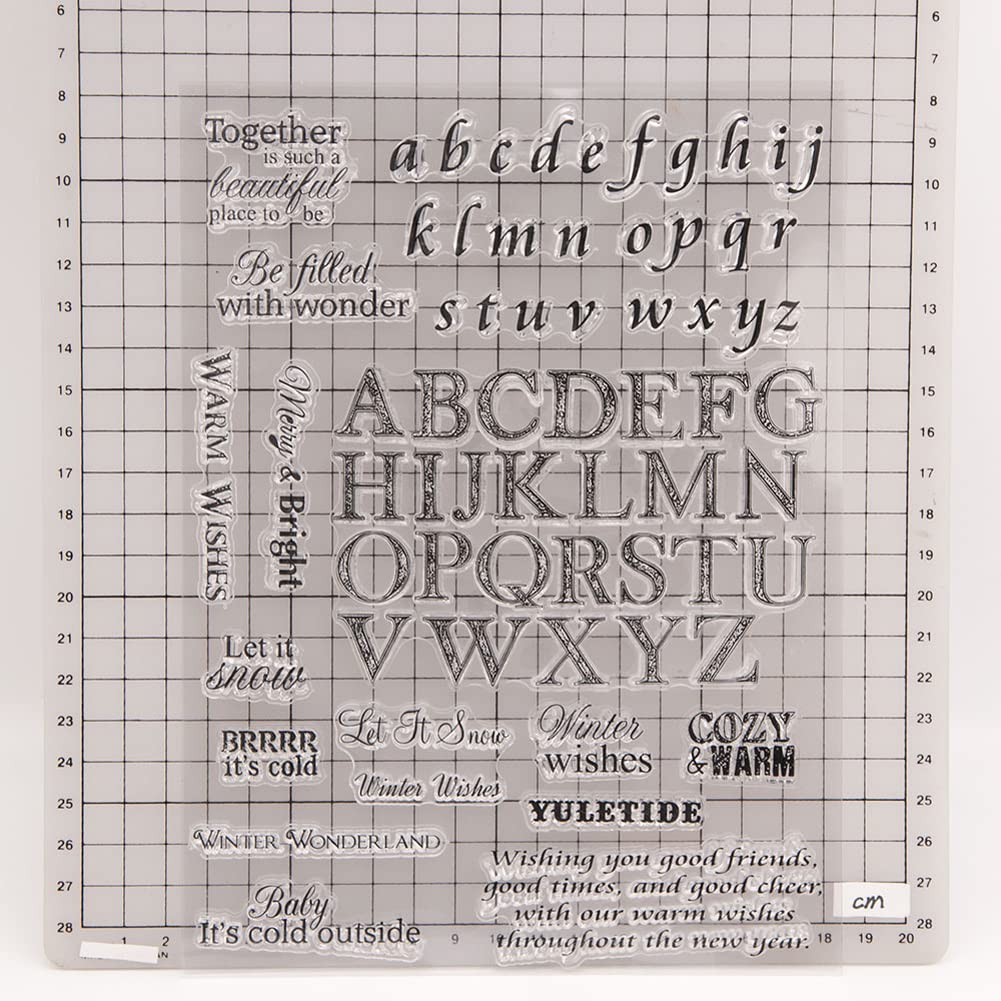 Together
is such a
beautiful
place to be
a b c d e f g h i j
k l m n o p q r
s t u v w x y z
Be filled
with wonder
WARM WISHES
Merry & Bright
A B C D E F G
H I J K L M N
O P Q R S T U
V W X Y Z
Let it
snow
BRRRR
it's cold
Let It Snow
Winter Wishes
Winter
wishes
COZY
& WARM
YULETIDE
WINTER WONDERLAND
Baby
It's cold outside
Wishing you good friends,
good times, and good cheer,
with our warm wishes
throughout the new year.
cm
6
7
8
9
10
11
12
13
14
15
16
17
18
19
20
21
22
23
24
25
26
27
28
6
8
9
10
11
12
13
14
15
16
17
18
19
20
21
22
23
24
25
26
27
28
1 2 9 18 19 20